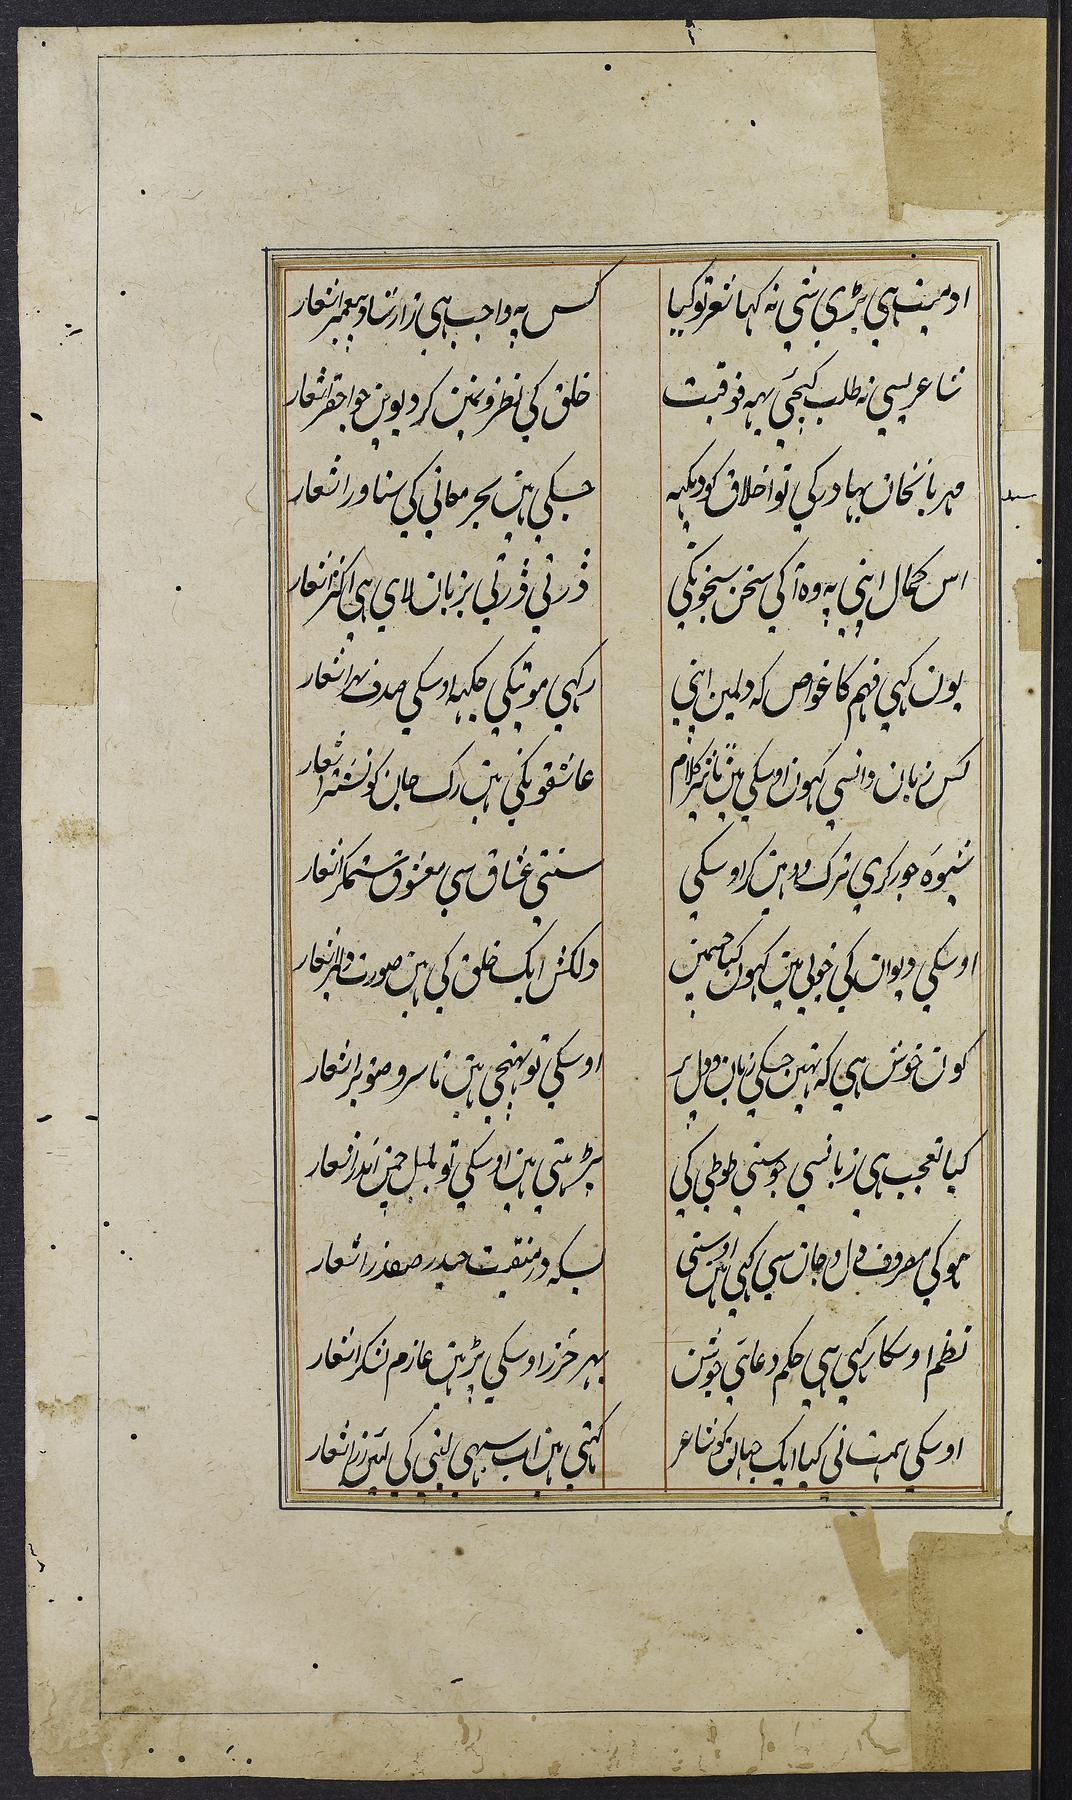 ادمیت هی بڑی شی نه کہا شعر تو کیا کس په واجب هی ز ارشاد پیمبر اشعار
شاعریسی نه طلب کیجئی یهه فوقیت خلق کی نظرونمین کر دیوین جو احقر اشعار
مهربانخان بهادر کی تو اخلاق کو دیکهه جسکی هین بحر معانی کی شناور اشعار
اس کمال اپنی په وه آکی سخن سنجونکی ڈرتی ڈرتی بزبان لای هی اکثر اشعار
یون کهی فهم کا غواص که دلمین اپنی رکهی موتیکی جگهه اوسکی صدف هر اشعار
کس زبان دانسی کهون اوسکی هین تاثیر کلام عاشقونکی هین رک جان کو نشتر اشعار
شیوه جور کری ترک وو هین کر اوسکی سنتی عشاق سی معشوق ستمکر اشعار
اوسکی دیوان کی خوبی مین کهون کیا جسمین دلکش ایک خلق کی هین صورت دلبر اشعار
کون خوش هی که نهین جسکی زبان و دل پر اوسکی تو پهنچی هین تا سرو صنوبر اشعار
کیا تعجب هی زبانسی جو سنی طوطی کی پڑهتی هین اوسکی تو بلبل چمن اندر اشعار
هوکی مصروف دل و جان سی کهی هین اوسنی بسکه در منقبت حیدر صفدر اشعار
نظم اوسکا رکهی هی حکم دعائی جوشن بهر حرز اوسکی پڑهین عازم لشکر اشعار
اوسکی همت نی کیا ایک جهانکو شاعر کهتی هین اب سبهی لینی کی لئین زر اشعار